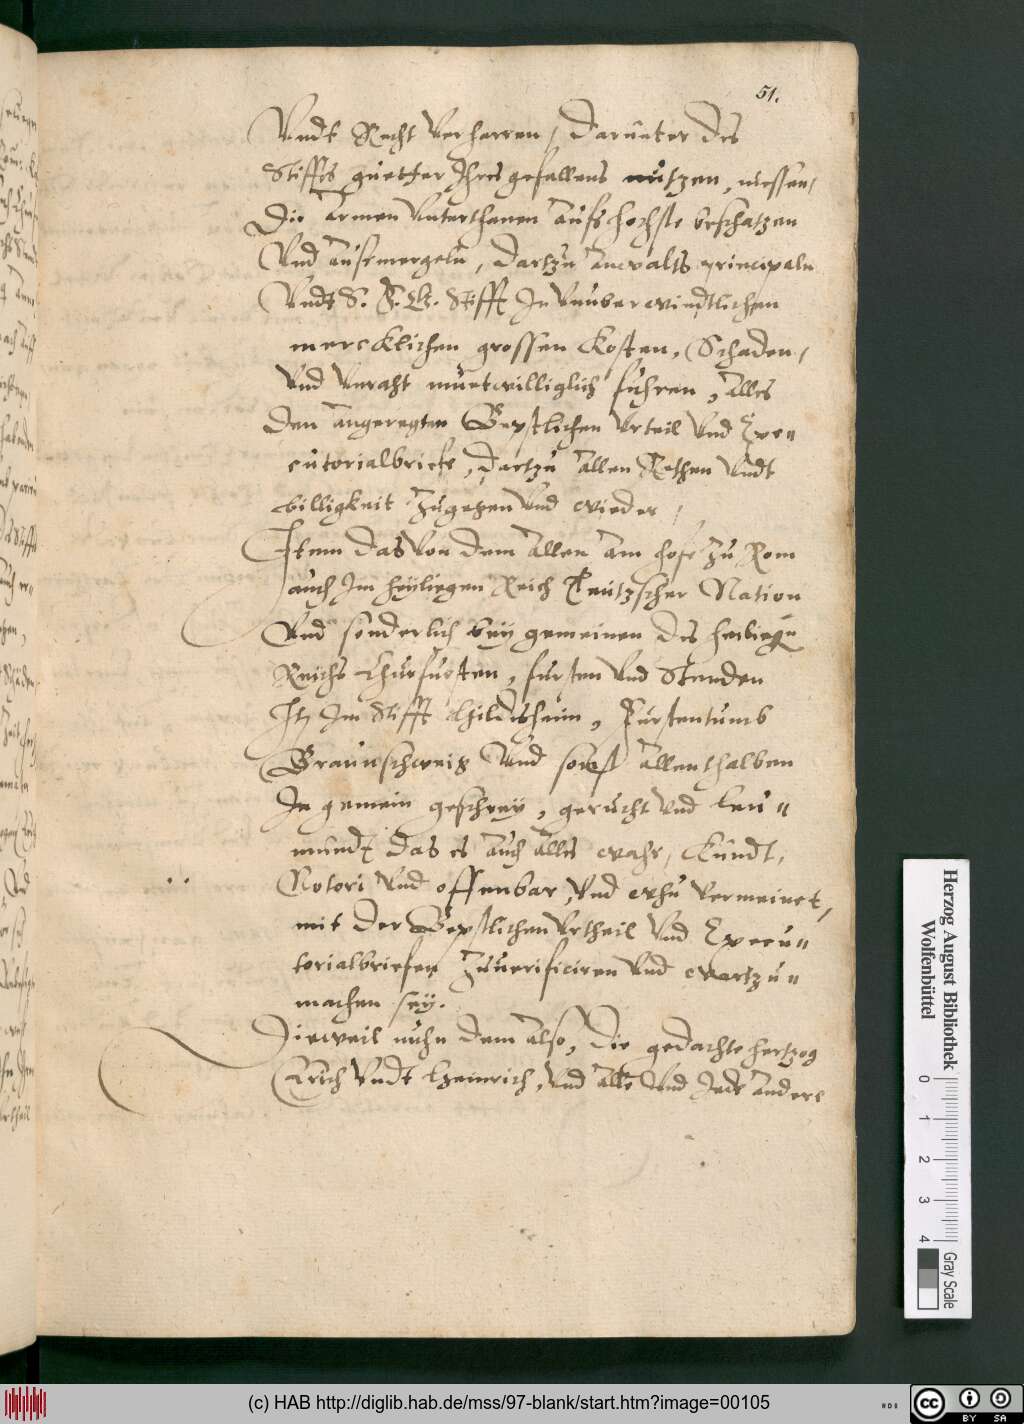 51.
Undt Recht verharren, darunter des
Stiffts guetter Ihres gefallens nutzen, niessen,
Die Armen Unterthanen Aufs hochste beschatzen
Und Ausmergeln, dartzu Anwalts principaln
Undt S. F. G. Stifft In unuberwindtlichen
mercklichen grossen Kosten, Schaden,
und unraht muetwilliglich fuhren, Alles
Den Angeregten Bepstlichen urteil und Exe-
cutorialbriefe, dartzu Allen Rethen undt
billigkeit zugegen und wieder,
Item das von dem Allen Am hofe zu Rom
auch Im heyliegen Reich Teutzscher Nation
und sonderlich bey gemeinen des heiliegen
Reichs Churfursten, fursten und Stenden
Itz Im Stifft Hildesheim, Furstentumb
Braunschweig und sonst Allenthalben
In gemein geschrey, gerucht und Leu-
mundt das es Auch Alles wahr, Kundt,
Notori und offenbar, und whu vermeinet,
mit der Bepstlichen urtheil und Execu-
torialbriefen zuuerificiren und wartzu-
machen sey.
Dieweil nuhn dem Also, die gedachte hertzog
Erich undt Heinrich, und Alle und Jede Andere
Herzog August Bibliothek
Wolfenbüttel
0 1 2 3 4
Gray Scale
(c) HAB http://diglib.hab.de/mss/97-blank/start.htm?image=00105
cc BY SA